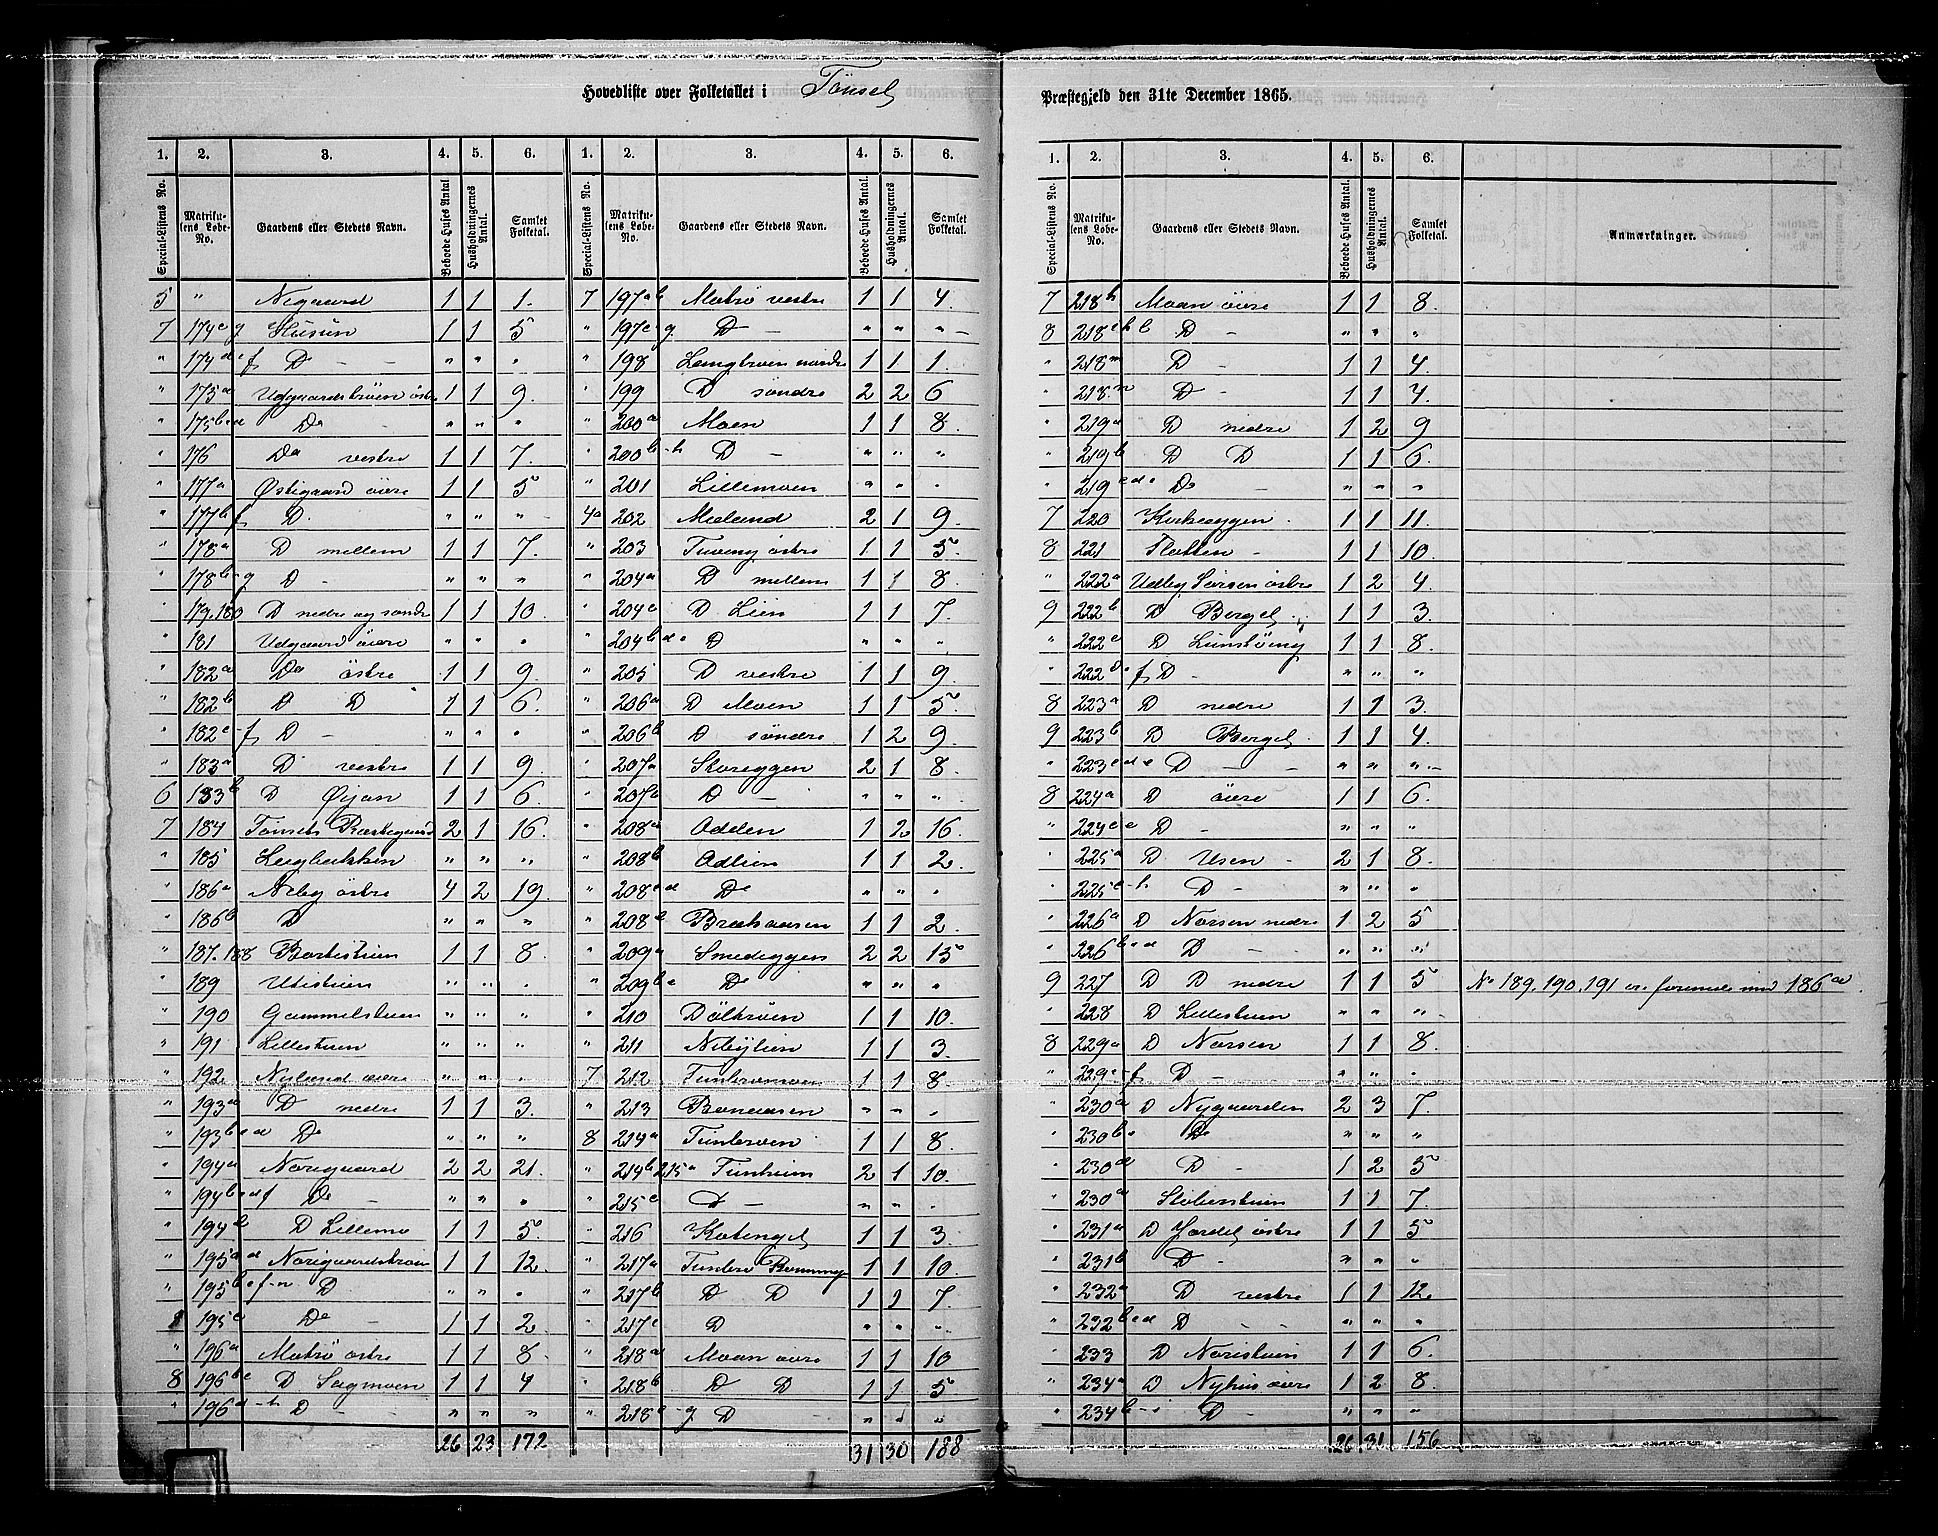 Hovedliste over Folketallet i Tönset Præstegjeld den 31te December 1865.
1. 2. 3. 4. 5. 6. 1. 2. 3. 4. 5. 6.
Special-Listens No. Matrikulens Løbe-No. Gaardens eller Stedets Navn. Beboede Huses Antal. Husholdningernes Antal. Samlet Folketal. Special-Listens No. Matrikulens Løbe-No. Gaardens eller Stedets Navn. Beboede Huses Antal. Husholdningernes Antal. Samlet Folketal.
5 " Nigaard 1 1 1.
7 174c g Husun 1 1 5
" 174d e f Do - - " " "
" 175a Udgaardsbröen östre 1 1 9.
" 175b c d Do - " " "
" 176 Do vestre 1 1 7.
" 177a Østigaard öire 1 1 5
" 177b f D. " " "
" 178a D mellem 1 1 7.
" 178b-g D - " " "
" 179.180 D nedre og söndre 1 1 10.
" 181 Udgaard öire " " "
" 182a Do östre 1 1 9.
" 182b D D 1 1 6.
" 182c-f D - " " "
" 183a D vestre 1 1 9
6 183b D Øian 1 1 6.
7 184 Tönsets Præstegaard 2 1 16.
" 185 " " "
" 186a Neby östre 4 2 19.
" 186b D " " "
" 187.188 Bortistuen 1 1 8.
" 189 Utistuen " " "
" 190 Gammelstuen " " "
" 191 Lillestuen " " "
" 192 Nyland öire " " "
" 193a D nedre 1 1 3.
" 193b c d Do " " "
" 194a Norigaard 2 2 21.
" 194b c d f Do - " " "
" 194e D Lillemo 1 1 5.
" 195a d Norigaardströen 1 1 12.
" 195b e f-n D " " "
195c Do - 1 1 2
" 196a Motrö östre 1 1 8.
8 196b c D Sagmoen 1 1 4
" 196d-h D - " " "
26 23 172
7 197a b Motrö vestre 1 1 4.
" 197c g D - " " "
" 198 Langbroen nordre 1 1 1.
" 199 D söndre 2 2 6
" 200a Moen 1 1 8.
" 200b-h D - " " "
" 201 Lillemoen " " "
4a 202 Mieland 2 1 9.
" 203 Tuveng östre 1 1 5.
" 204a D mellem 1 1 8.
" 204c D Lien 1 1 7.
" 204b d e D " " "
" 205 D vestre 1 1 9
" 206a D Moen 1 1 5.
" 206b D söndre 1 2 9.
" 207a Storeggen 2 1 8.
" 207b D - " " "
" 208a Odden 1 2 16.
" 208b Odlien 1 1 2.
" 208c d Do " " "
" 208e Brækaasen 1 1 2.
" 209a Smedeggen 2 2 15
" 209b c Do " " "
" 210 Dölbröen 1 1 10.
" 211 Nibylien 1 1 3.
7 212 Tunbromoen 1 1 8.
" 213 Bonaasen " " "
8 214a Tunbroen 1 1 8.
" 214b 215a Tunheim 2 1 10.
" 215c D - " " "
" 216 Kotenget 1 1 3.
" 217a Tunbro Ramming 1 1 10.
" 217b D D 1 1 7.
" 217c D " " "
" 218a Moan öire 1 1 10
" 218b D D 1 1 5
" 218c-g D " " "
31 30 188
1. 2. 3. 4. 5. 6.
Special-Listens No. Matrikulens Løbe-No. Gaardens eller Stedets Navn. Beboede Huses Antal. Husholdningernes Antal. Samlet Folketal. Anmærkninger.
7 218h Moan öire 1 1 8.
8 218 D - " " "
" 218m D - 1 1 4.
" 218n D - 1 1 4.
" 219a D nedre 1 2 9
" 219b D D 1 1 6.
" 219c d e Do - " " "
7 220 Kirkeeggen 1 1 11.
8 221 Flatten - 1 1 10.
" 222a Udby Sörsen östre 1 2 4.
9 222b D Berget 1 1 3.
" 222c D 1 1 8.
" 222d e f D - " " "
8 223a D nedre 1 1 3.
9 223b D Berget 1 1 4.
" 223c d e D - - " " "
8 224a D öire 1 1 6.
" 224c e D - " " "
" 225a D Usen - 2 1 8.
" 225c-h D - " " "
" 226a D Norsen nedre 1 2 5
" 226b c d D - " " "
9 227 D D nedre 1 1 5 No 189.190.191 er forenede med 186a
" 228 D Lillestuen " " "
8 229a D Norsen 1 1 8.
" 229c-f D - " " "
" 230a D Nygaarden 2 3 7.
" 230b c Do " " "
" 230d D - 1 2 5
" 230a 1 1 7.
" 231a D Jordet östre 1 1 5
" 231b D - " " "
" 232a D vestre 1 1 12.
" 232b c d D - - " " "
" 233 D Noristuen 1 1 6.
" 234a D Nyhus öire 1 2 8.
" 234b-i D - " " "
26 31 156